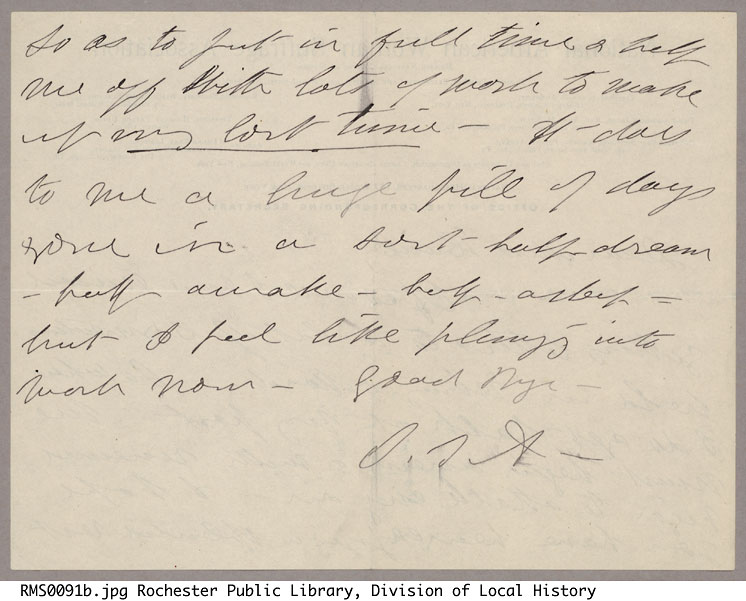 so as to put in full time & help
me off with lots of work to make
up my lost time — It does
to me a huge pill of days
gone in a sort half dream
– half awake – half – asleep –
but I feel like plung'g into
work now – Good Bye –
S. B. A –
RMS0091b.jpg Rochester Public Library, Division of Local History